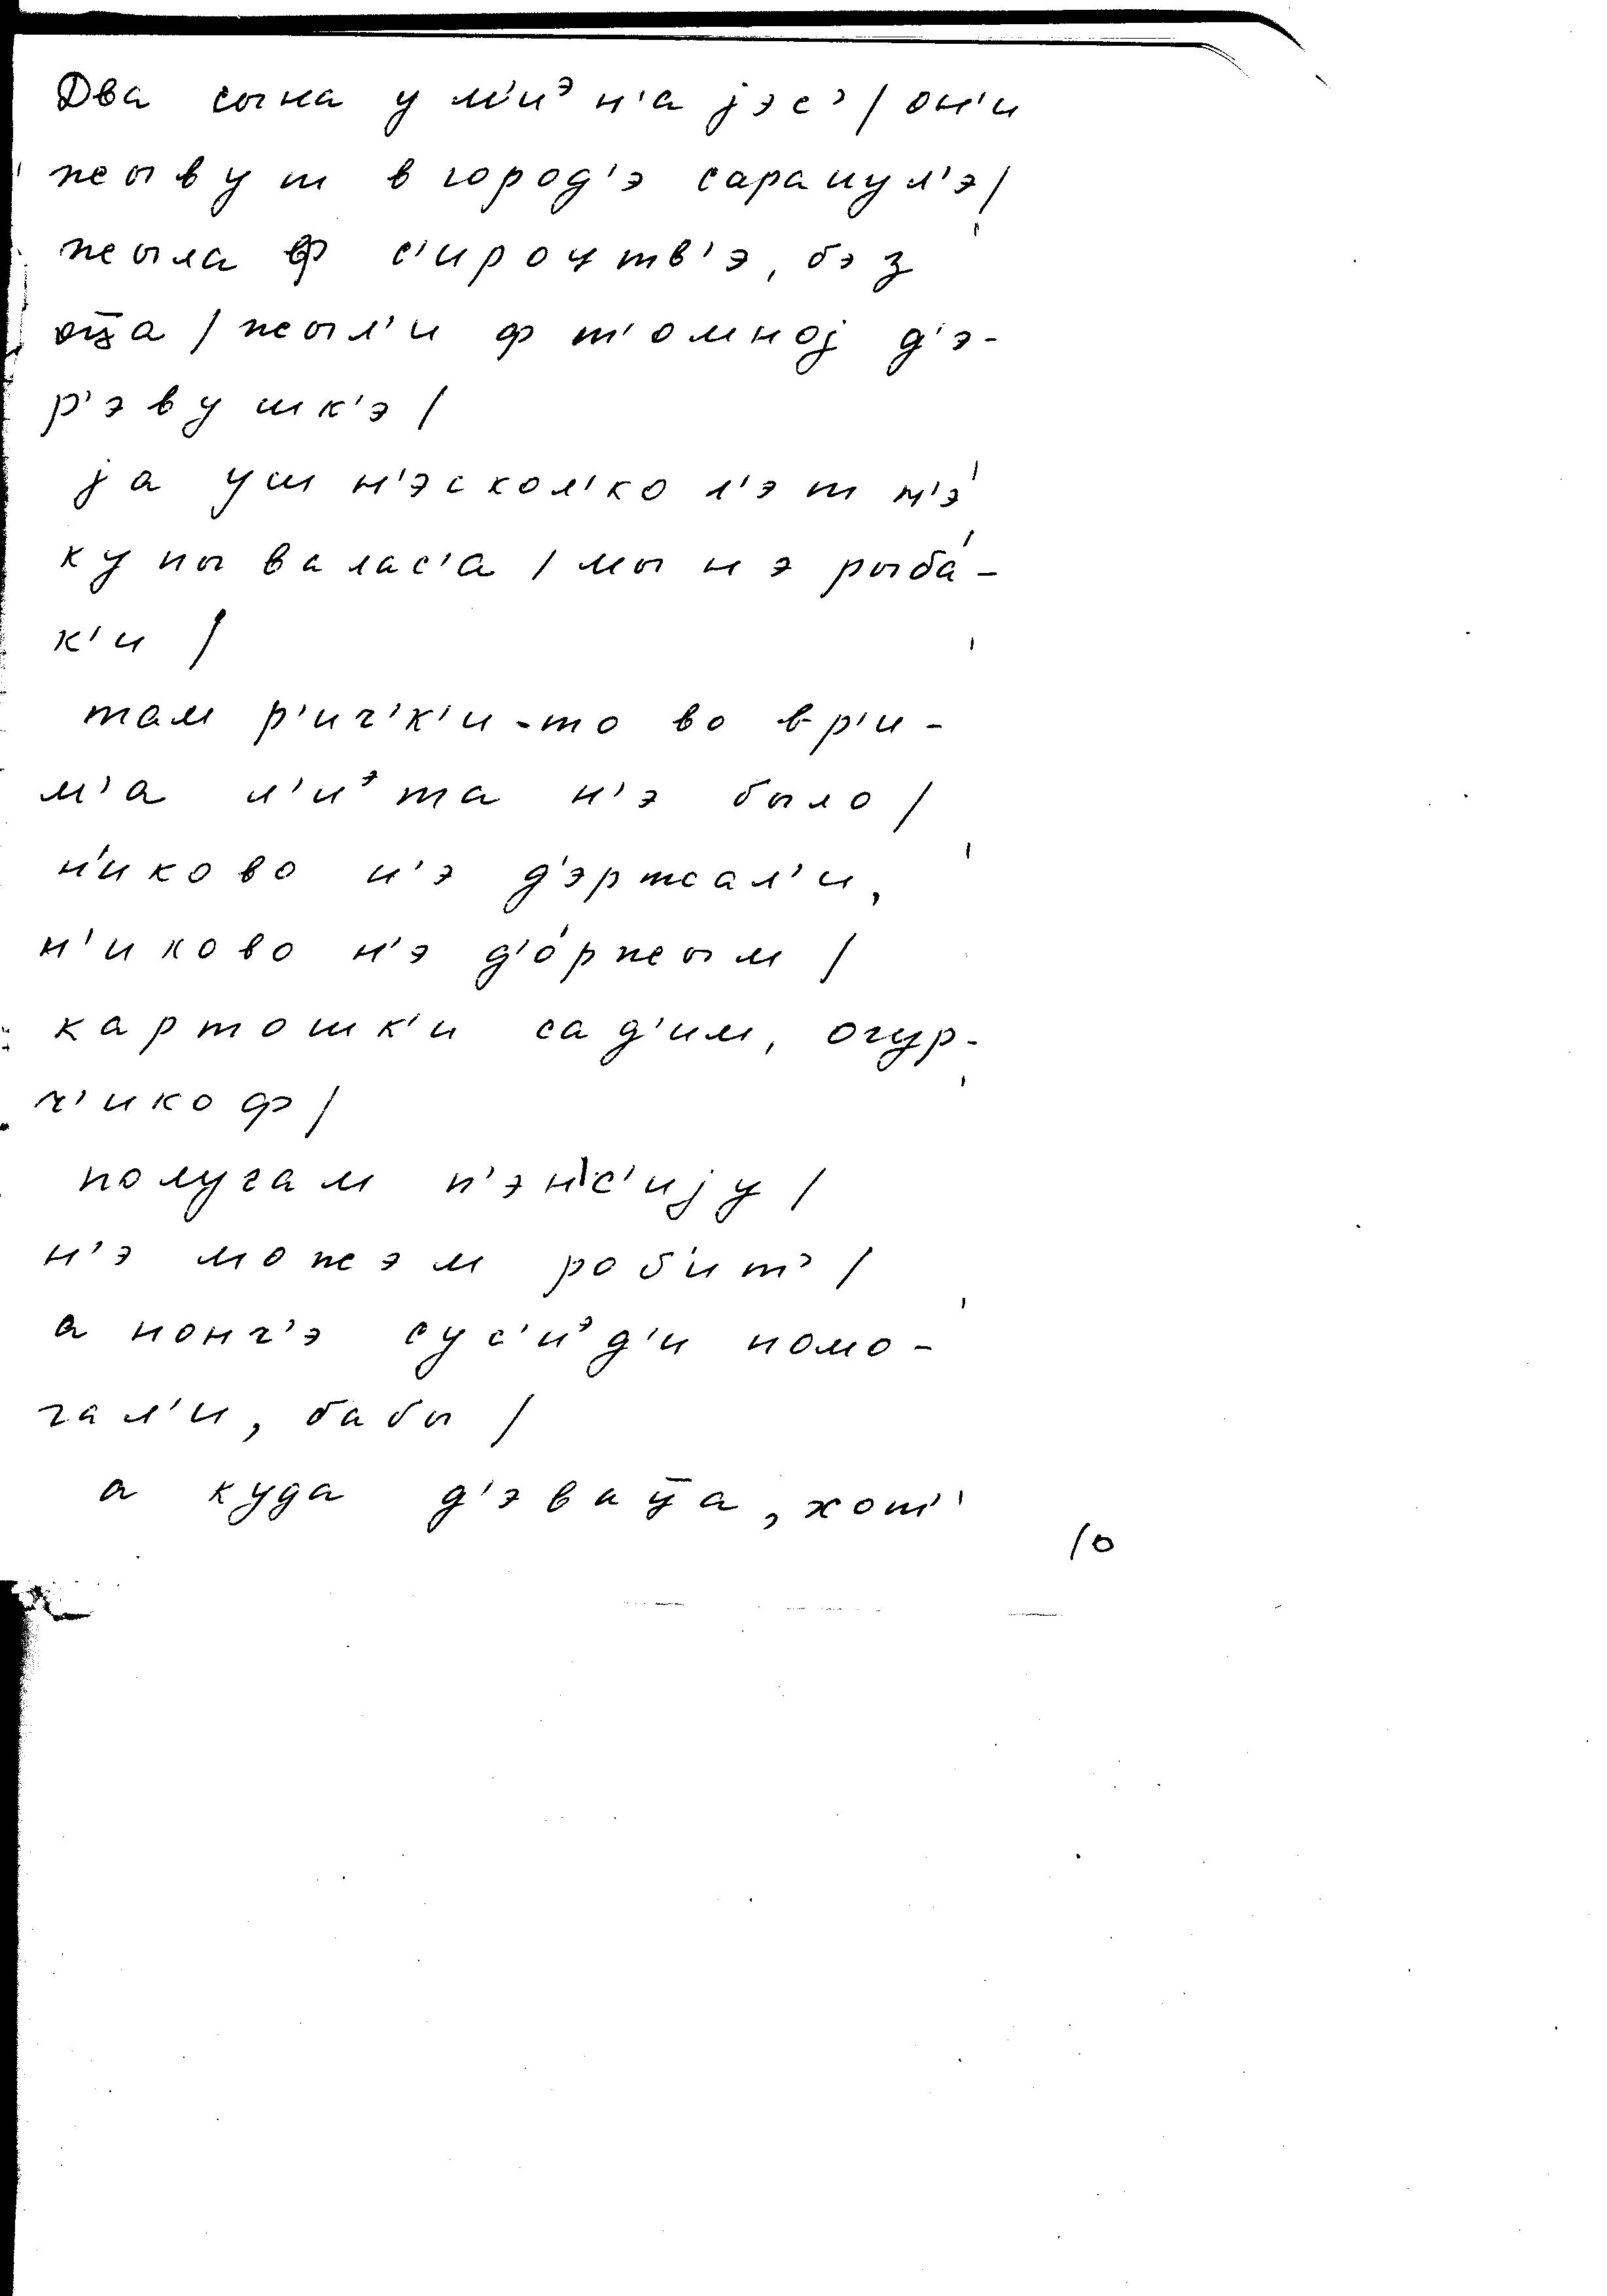 Два сына у м'иᵊ н'а jэс' / он'и
жывут в город'э сарапул'э /
жыла ф с'ироцтв'э, бэз
оц̄а / жыл'и ф т'омноj д'э-
р'эвушк'э /
jа уш н'эскол'ко л'эт н'э
купывалас'а / мы нэ рыба́-
к'и /
там р'ич'к'и-то во вр'и-
м'а л'иᵊта н'э было /
н'иково н'э д'эржал'и,
н'иково н'э д'о́ржым /
картошк'и сад'им, огур-
ч'икоф /
получам п'эн'с'иjу /
н'э можэм роб'ит' /
а нонч'э сус'иᵊд'и помо-
гал'и, бабы /
а куда д'эвац̄а, хот'
10